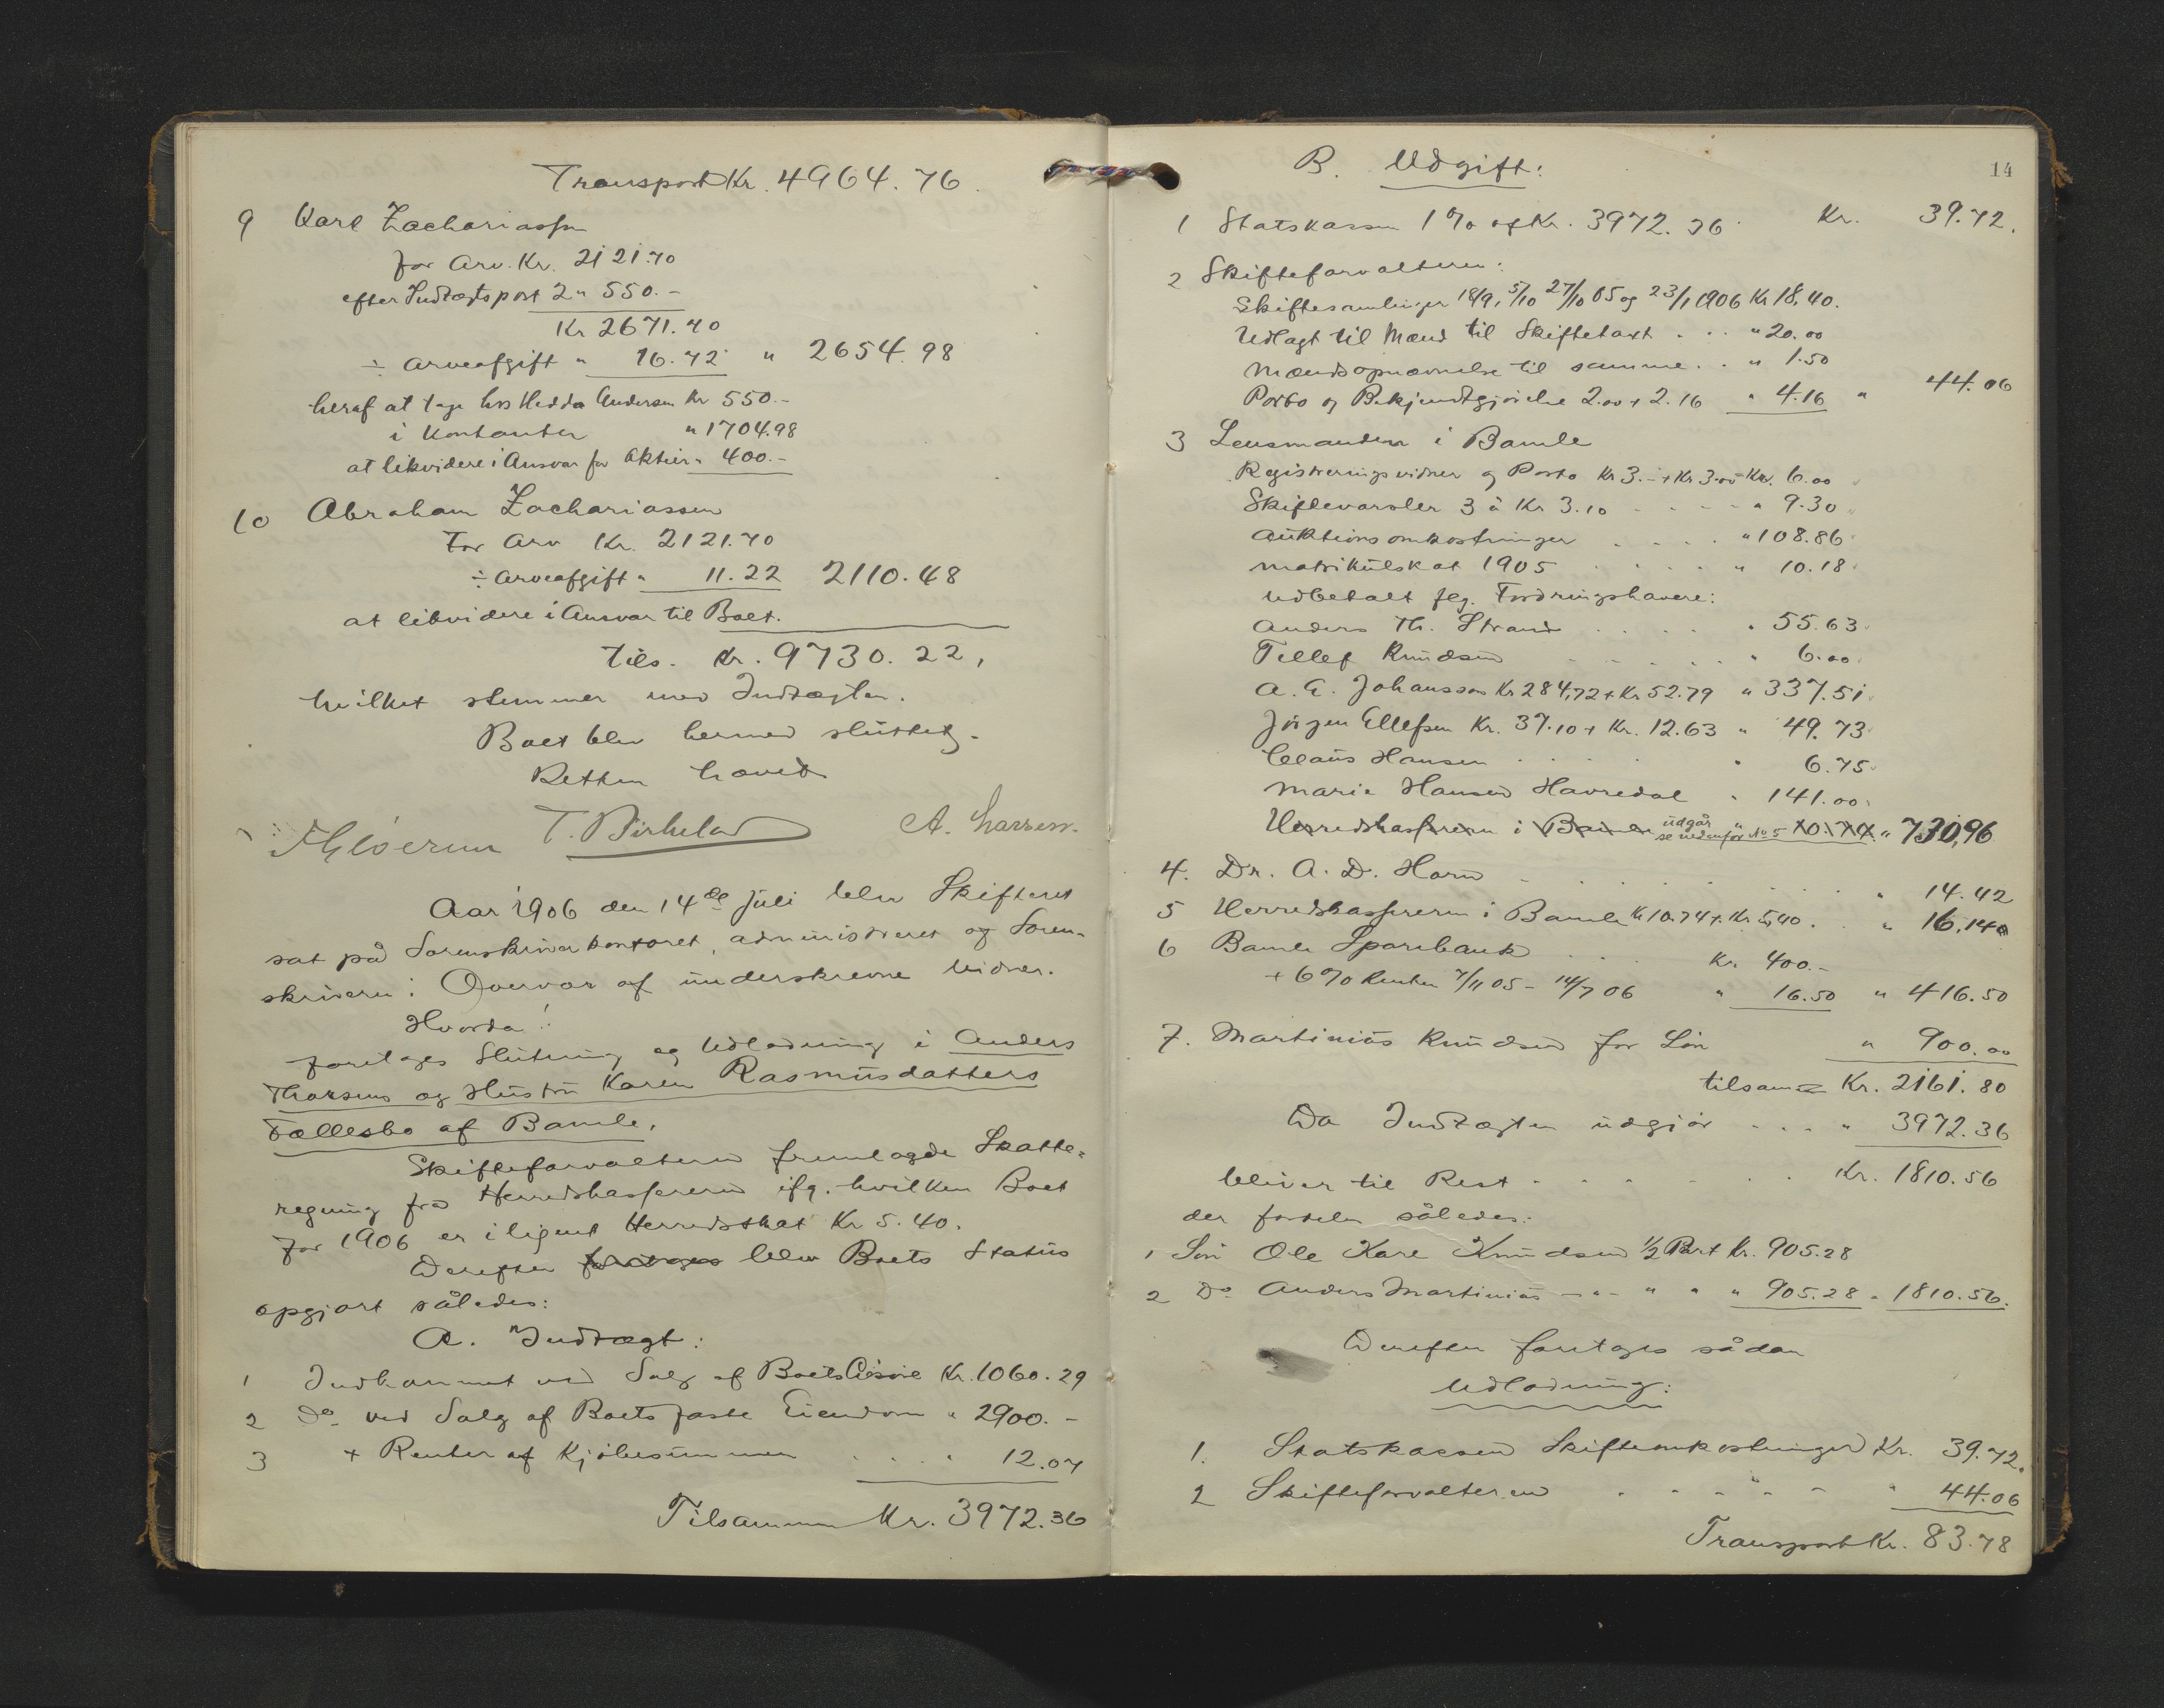 Transport Kr. 4964.76.
9 Karl Zachariassen
for Arv. Kr. 2121.70
efter Indtægtspost 2 " 550.-
Kr 2671.70
÷ Arveafgift " 16.72 " 2654.98
heraf at tage hos Hedda Andersen Kr 550.-
i Kontanter " 1704.98
at likvidere i Ansvar for Aktier " 400.-
10 Abraham Zachariassen
For Arv Kr. 2121.70
÷ Arveafgift " 11.22 2110.48
at likvidere i Ansvar til Boet.
Tils. Kr. 9730.22,
hvilket stemmer med Indtægten.
Boet blev hermed sluttet.
Retten hævet
T. Birkeland A. Larssen.
Aar 1906 den 14de Juli blev Skifteret
sat på Sorenskriverkontoret, administreret af Soren-
skriveren i Overvær af underskrevne Vidner.
Hvorda!
foretages Slutning og Udlodning i Anders
Thorsens og Hustru Karen Rasmusdatters
Fællesbo af Bamle.
Skifteforvalteren fremlagde Skatte-
regning fra Herredskassereren ifg. hvilken Boet
for 1906 er ilignet Herredsskat Kr 5.40.
Derefter foretages blev Boets Status
opgjort således:
A. Indtægt:
1 Indkommet ved Salg af Boets Løsøre Kr. 1060.29
2 Do ved Salg af Boets faste Eiendom " 2900.-
3 + Renter af Kjøbesummen . . . . 12.07
Tilsammen Kr. 3972.36
14
B. Udgift:
1 Statskassen 1 % af Kr. 3972.36 Kr. 39.72.
2 Skifteforvalteren:
Skiftesamlinger 18/9, 5/10 27/10 05 og 23/1 1906 Kr 18.40.
Udlagt til Mænd til Skiftetaxt . . . " 20.00
Mændsopnævnelse til samme . . " 1.50
Porto og Bekjendtgjørelse 2.00 + 2.16 " 4.16 " 44.06
3 Lensmanden i Bamle
Registreringsvidner og Porto Kr 3.- + Kr 3.00 Kr. 6.00
Skiftevarsler 3 à Kr 3.10 - - - - " 9.30
Auktionsomkostninger . . . . " 108.86
Matrikulskat 1905 . . . . " 10.18
Udbetalt flg. Fordringshavere:
Anders Th. Strand . . . . " 55.63
Tellef Knudsen - - - - - " 6.00
A. G. Johansson Kr 284.72 + Kr 52.79 " 337.51
Jörgen Ellefsen Kr. 37.10 + Kr. 12.63 " 49.73
Claus Hansen . . . . " 6.75
Marie Hansen Havredal " 141.00
Herredskassereren i Bamle udgår se nedenfor No 5 10.74 " 730,96
4. Dr. A. D. Horn . . . . . . . " 14.42
5 Herredskassereren i Bamle Kr 10.74 + Kr. 5,40 . . " 16,14
6 Bamle Sparebank . . . Kr. 400.-
+ 6 % Renter 7/11 05 - 14/7 06 " 16.50 " 416.50
7. Martinius Knudsen for Løn " 900.00
tilsammen Kr. 2161.80
Da Indtægten udgjör . . . . " 3972.36
bliver til Rest - - - - - - Kr. 1810.56
der fordeles således:
1 Søn Ole Kare Knudsen 1/2 Part Kr. 905.28
2 Do Anders Martinius - " - " " " 905.28 " 1810.56.
Derefter foretages sådan
Udlodning:
1. Statskassen Skifteomkostninger Kr. 39.72.
2 Skifteforvalteren - - - " - " 44.06
Transport Kr. 83.78